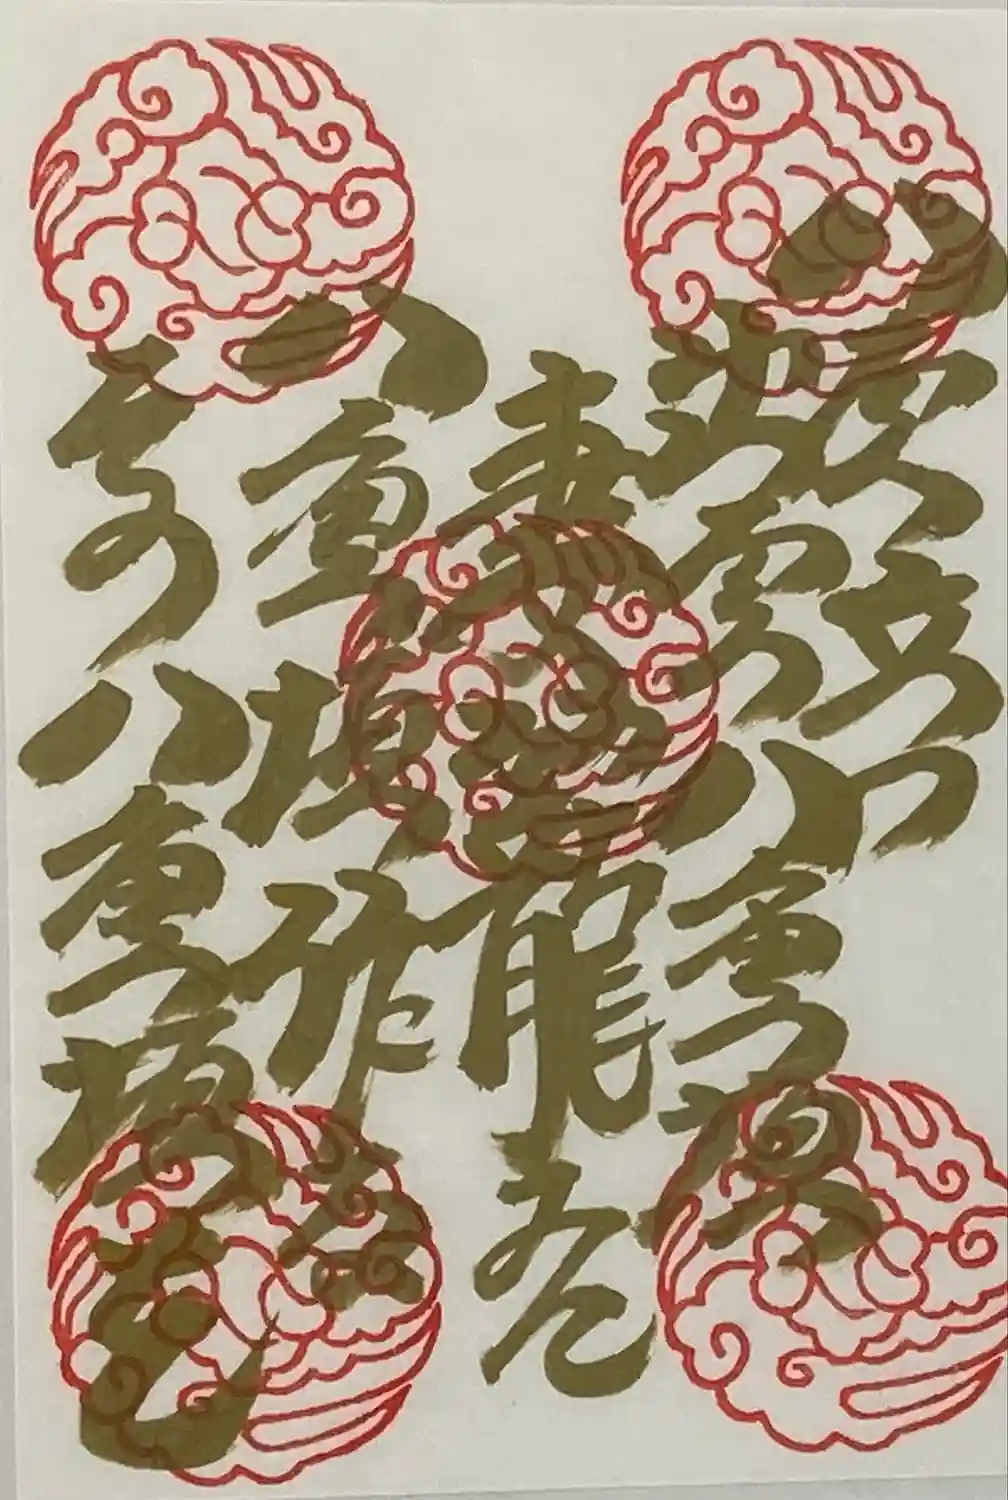 八雲立つ
出雲八重垣
妻
八重垣作る
その八重垣を